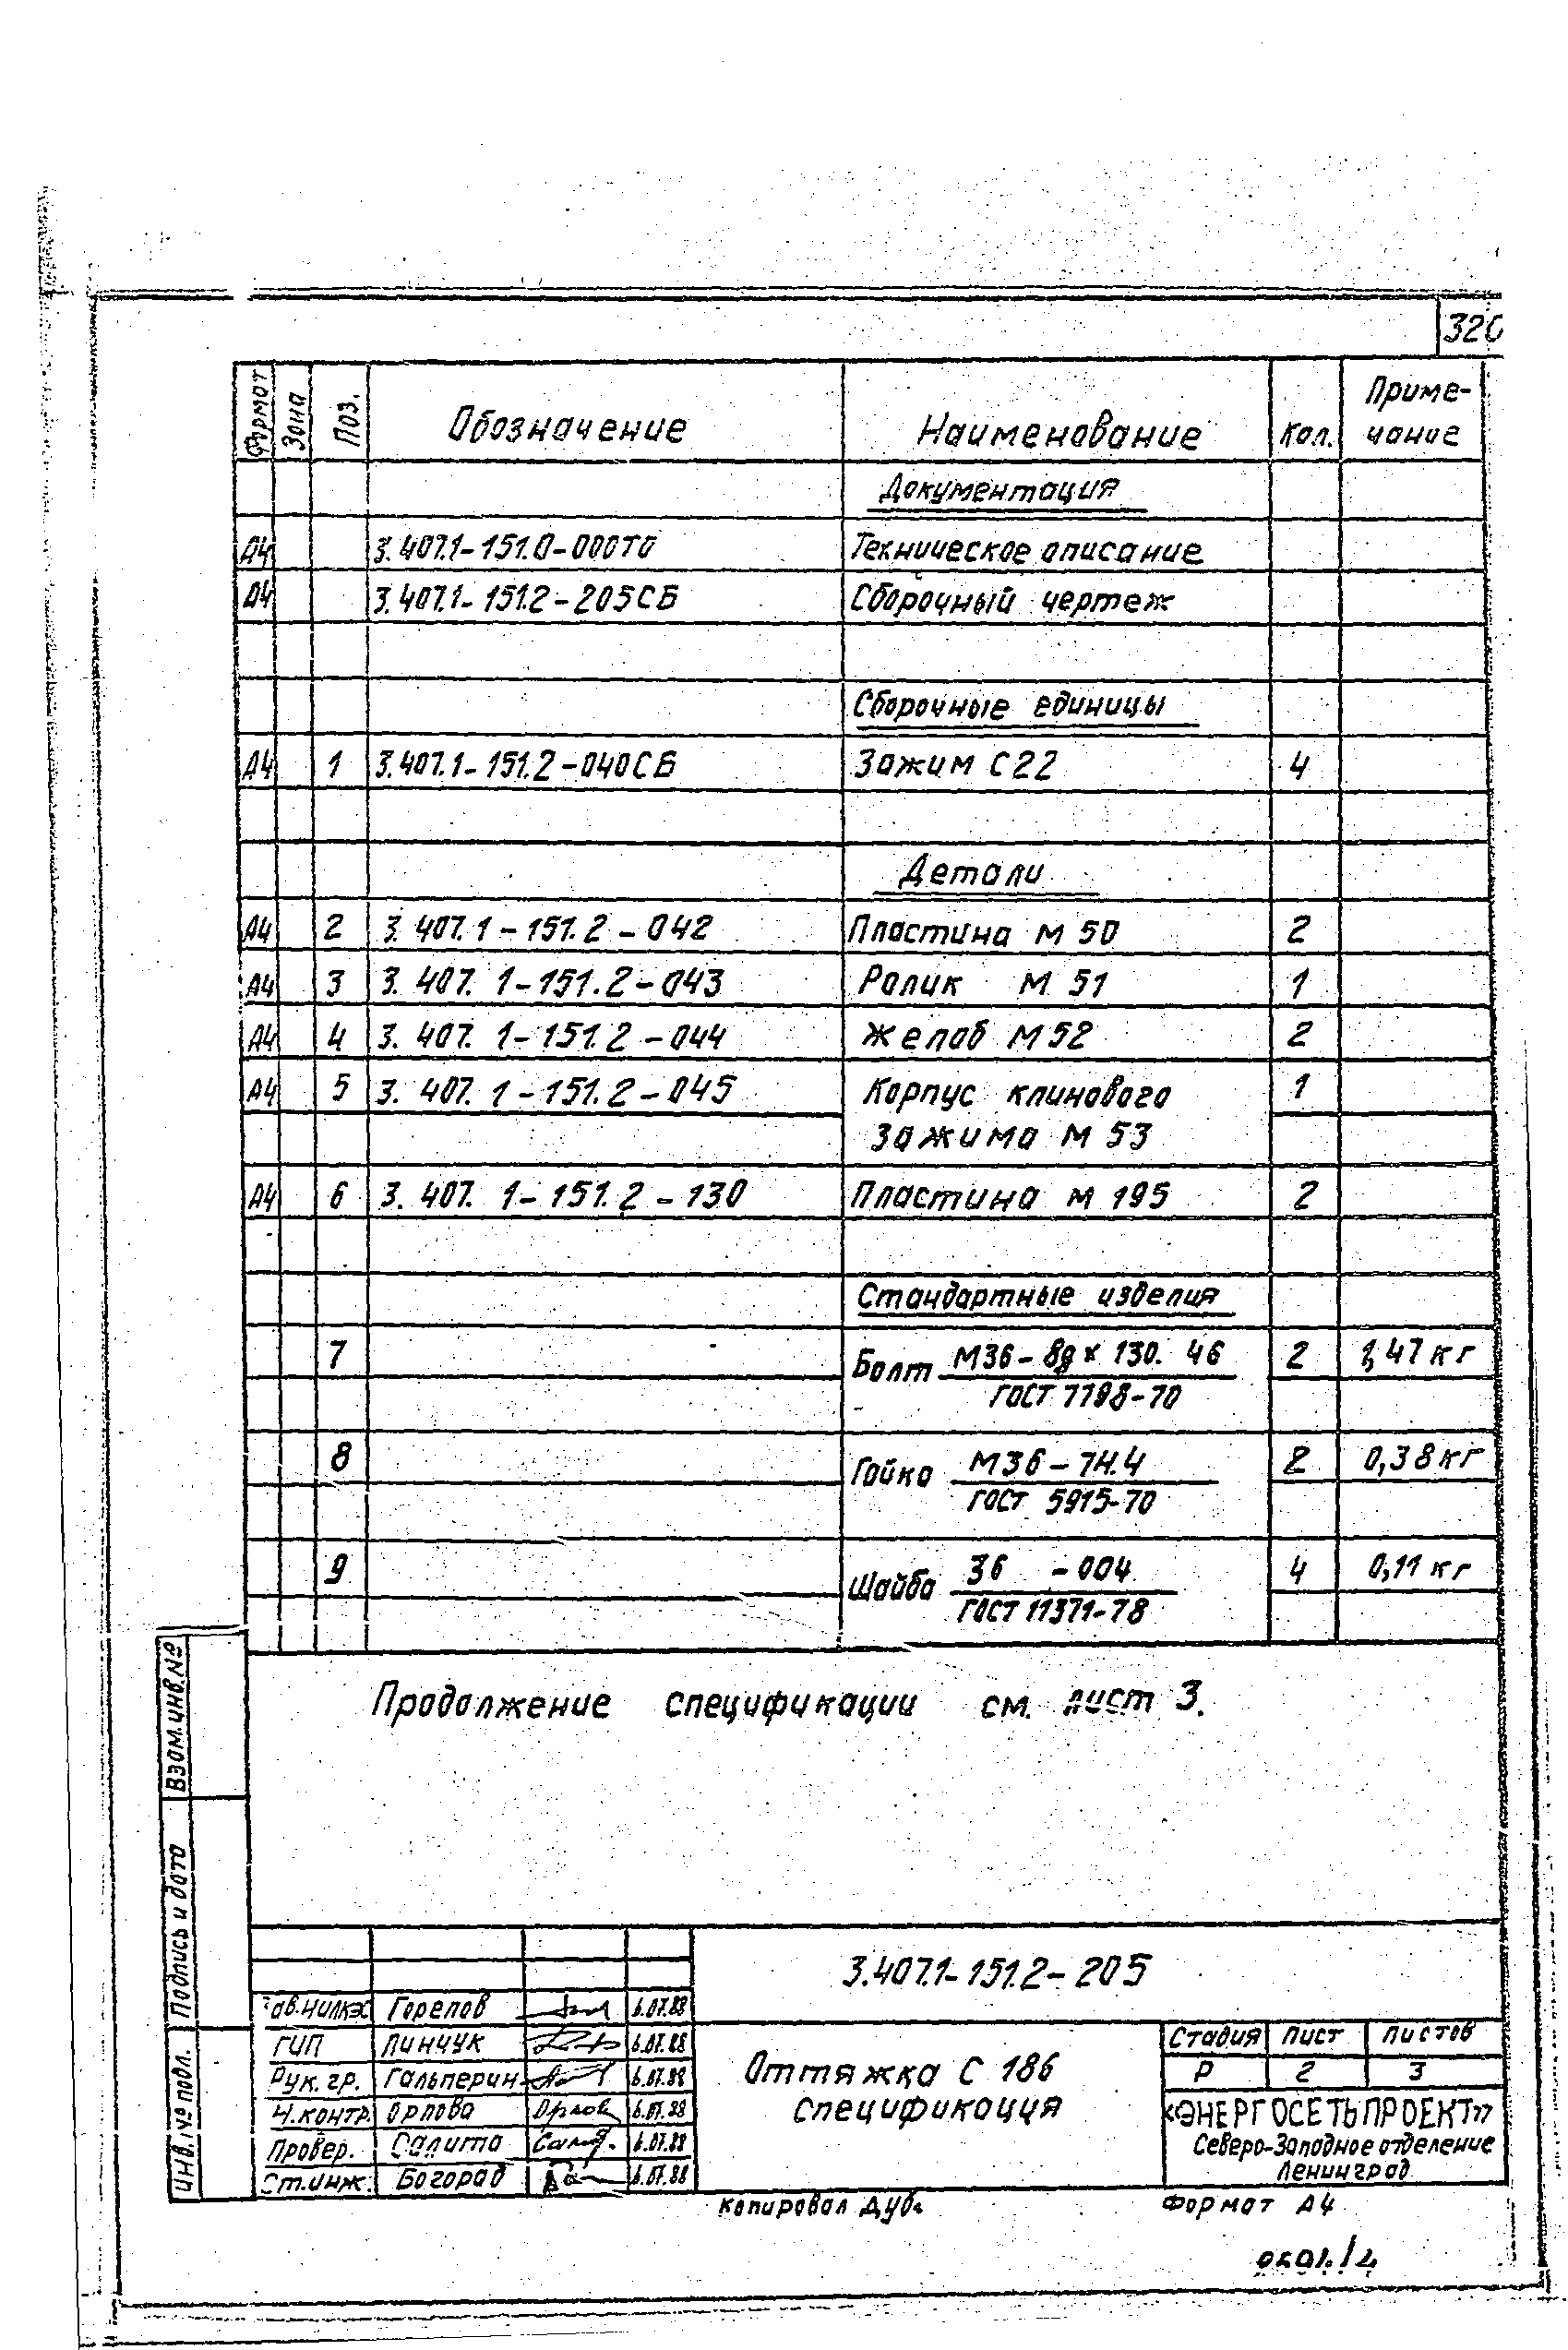 320
Формат Зона Поз. Обозначение Наименование Кол. Приме-
чание
Документация
А4 3.407.1-151.0-000ТО Техническое описание
А4 3.407.1-151.2-205СБ Сборочный чертеж
Сборочные единицы
А4 1 3.407.1-151.2-040СБ Зажим С22 4
Детали
А4 2 3.407.1-151.2-042 Пластина М 50 2
А4 3 3.407.1-151.2-043 Ролик М 51 1
А4 4 3.407.1-151.2-044 Желоб М 52 2
А4 5 3.407.1-151.2-045 Корпус клинового 1
зажима М 53
А4 6 3.407.1-151.2-130 Пластина М 195 2
Стандартные изделия
7 Болт М36-8g×130.46 2 1,47 кг
ГОСТ 7798-70
8 Гайка М36-7Н.4 2 0,38 кг
ГОСТ 5915-70
9 Шайба 36 -004 4 0,11 кг
ГОСТ 11371-78
Продолжение спецификации см. лист 3.
Взам.инв.№
Подпись и дата
Инв.№ подл.
3.407.1-151.2-205
Зав.НИЛКЭС Горелов 6.07.88
ГИП Линчук 6.07.88
Рук.гр. Гальперин 6.07.88
Н.контр. Орлова 6.07.88
Провер. Салита 6.07.88
Ст.инж. Богорад 6.07.88
Оттяжка С 186
Спецификация
Стадия Лист Листов
Р 2 3
«ЭНЕРГОСЕТЬПРОЕКТ»
Северо-Западное отделение
Ленинград
Копировал Формат А4